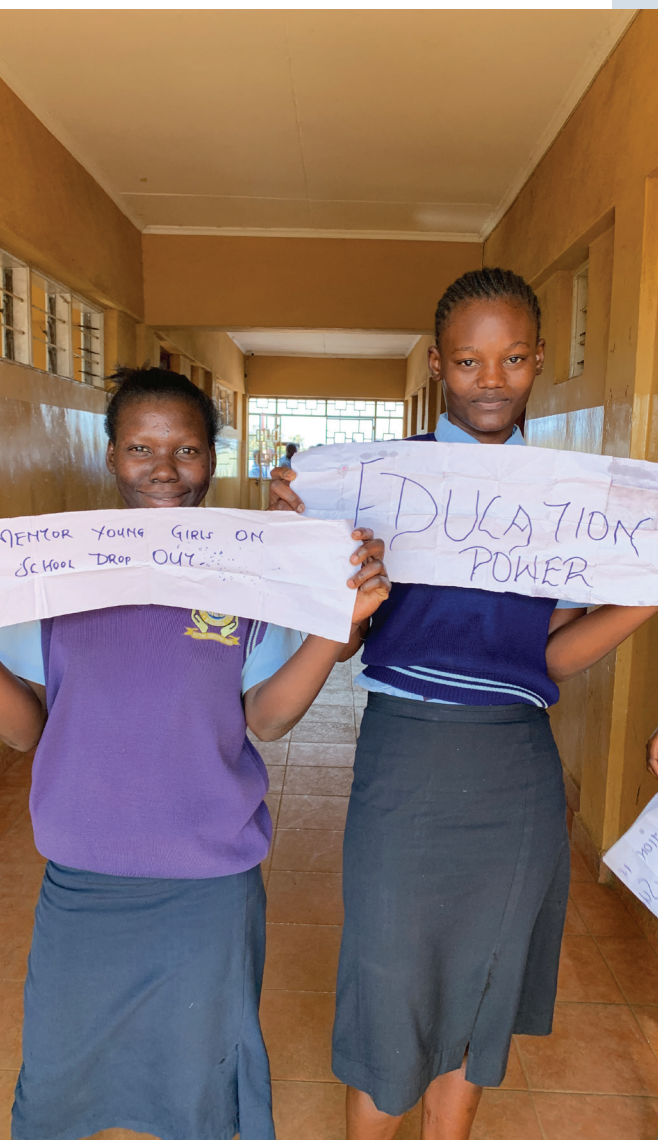 MENTOR YOUNG GIRLS ON
SCHOOL DROP OUT
EDUCATION
POWER